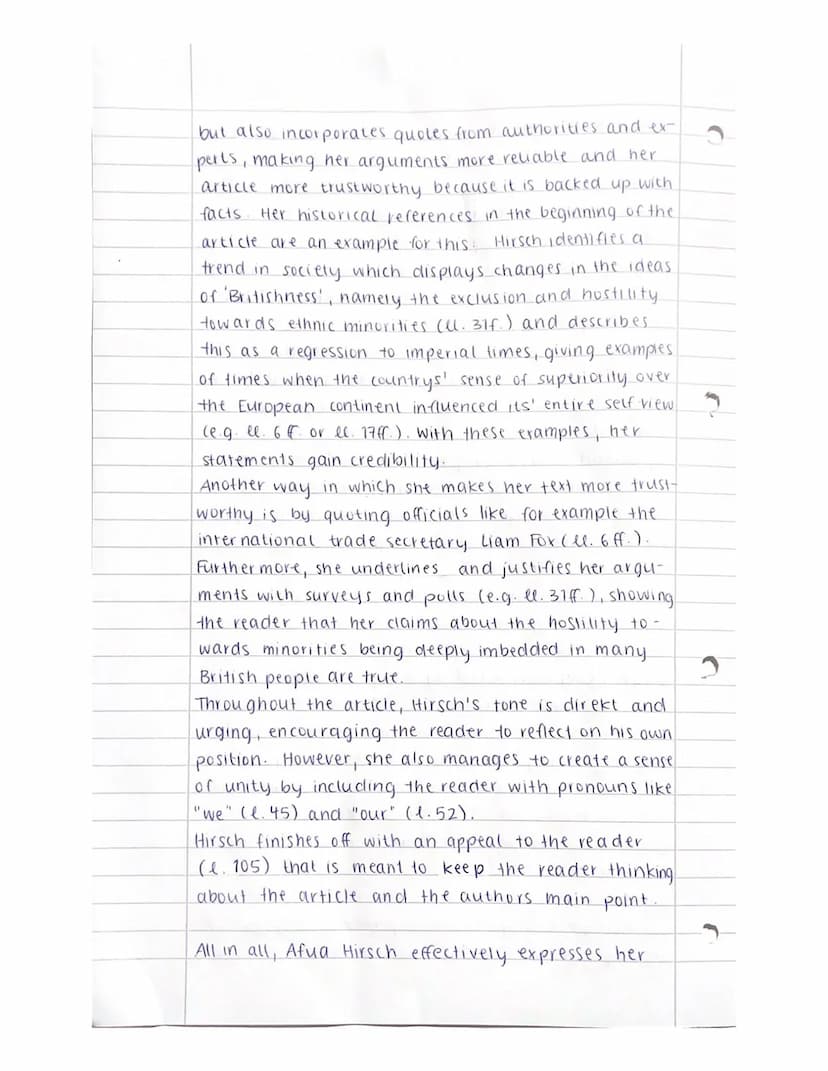 but also incorporates quotes from authorities and ex-
perts, making her arguments more reliable and her
article more trustworthy because it is backed up with
facts. Her historical references in the beginning of the
article are an example for this. Hirsch identifies a
trend in society which displays changes in the ideas
of 'Britishness', namely the exclusion and hostility
towards ethnic minorities (ll. 31f.) and describes
this as a regression to imperial times, giving examples
of times when the countrys' sense of superiority over
the European continent influenced its' entire self view
(e.g. ll. 6 ff. or ll. 17ff.). With these examples, her
statements gain credibility.
Another way in which she makes her text more trust-
worthy is by quoting officials like for example the
international trade secretary Liam Fox (ll. 6 ff.).
Furthermore, she underlines and justifies her argu-
ments with surveys and polls (e.g. ll. 31ff.), showing
the reader that her claims about the hostility to-
wards minorities being deeply imbedded in many
British people are true.
Throughout the article, Hirsch's tone is direkt and
urging, encouraging the reader to reflect on his own
position. However, she also manages to create a sense
of unity by including the reader with pronouns like
"we" (l. 45) and "our" (l. 52).
Hirsch finishes off with an appeal to the reader
(l. 105) that is meant to keep the reader thinking
about the article and the authors main point.
All in all, Afua Hirsch effectively expresses her